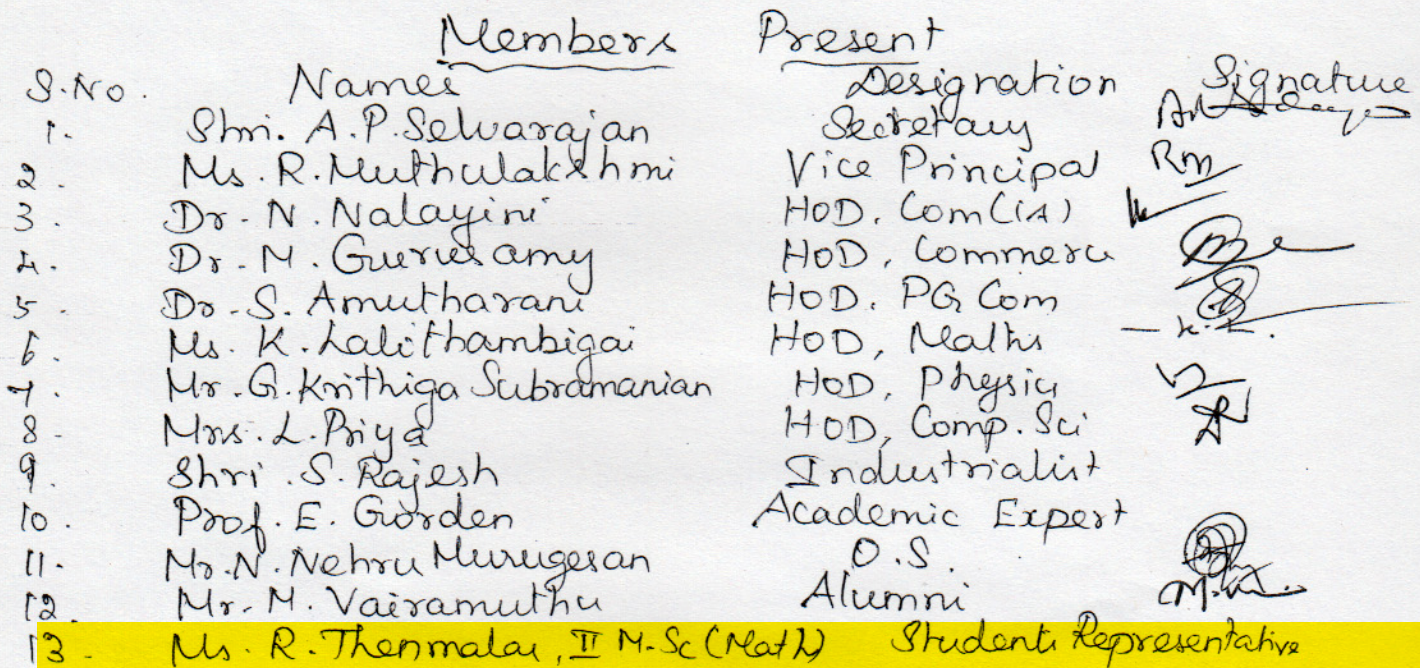 Members Present
S.No. Names Designation Signature
1. Shri. A.P. Selvarajan Secretary
2. Ms. R. Muthulakshmi Vice Principal Rm
3. Dr. N. Nalayini HOD, Com(CA)
4. Dr. M. Gurusamy HOD, Commerce
5. Dr. S. Amutharani HOD, PG Com
6. Ms. K. Lalithambigai HOD, Maths
7. Mr. G. Krithiga Subramanian HOD, Physics
8. Mrs. L. Priya HOD, Comp. Sci
9. Shri. S. Rajesh Industrialist
10. Prof. E. Gorden Academic Expert
11. Mr. N. Nehru Murugesan O.S.
12. Mr. M. Vairamuthu Alumni
13. Ms. R. Thenmalar, II M.Sc (Math) Students Representative